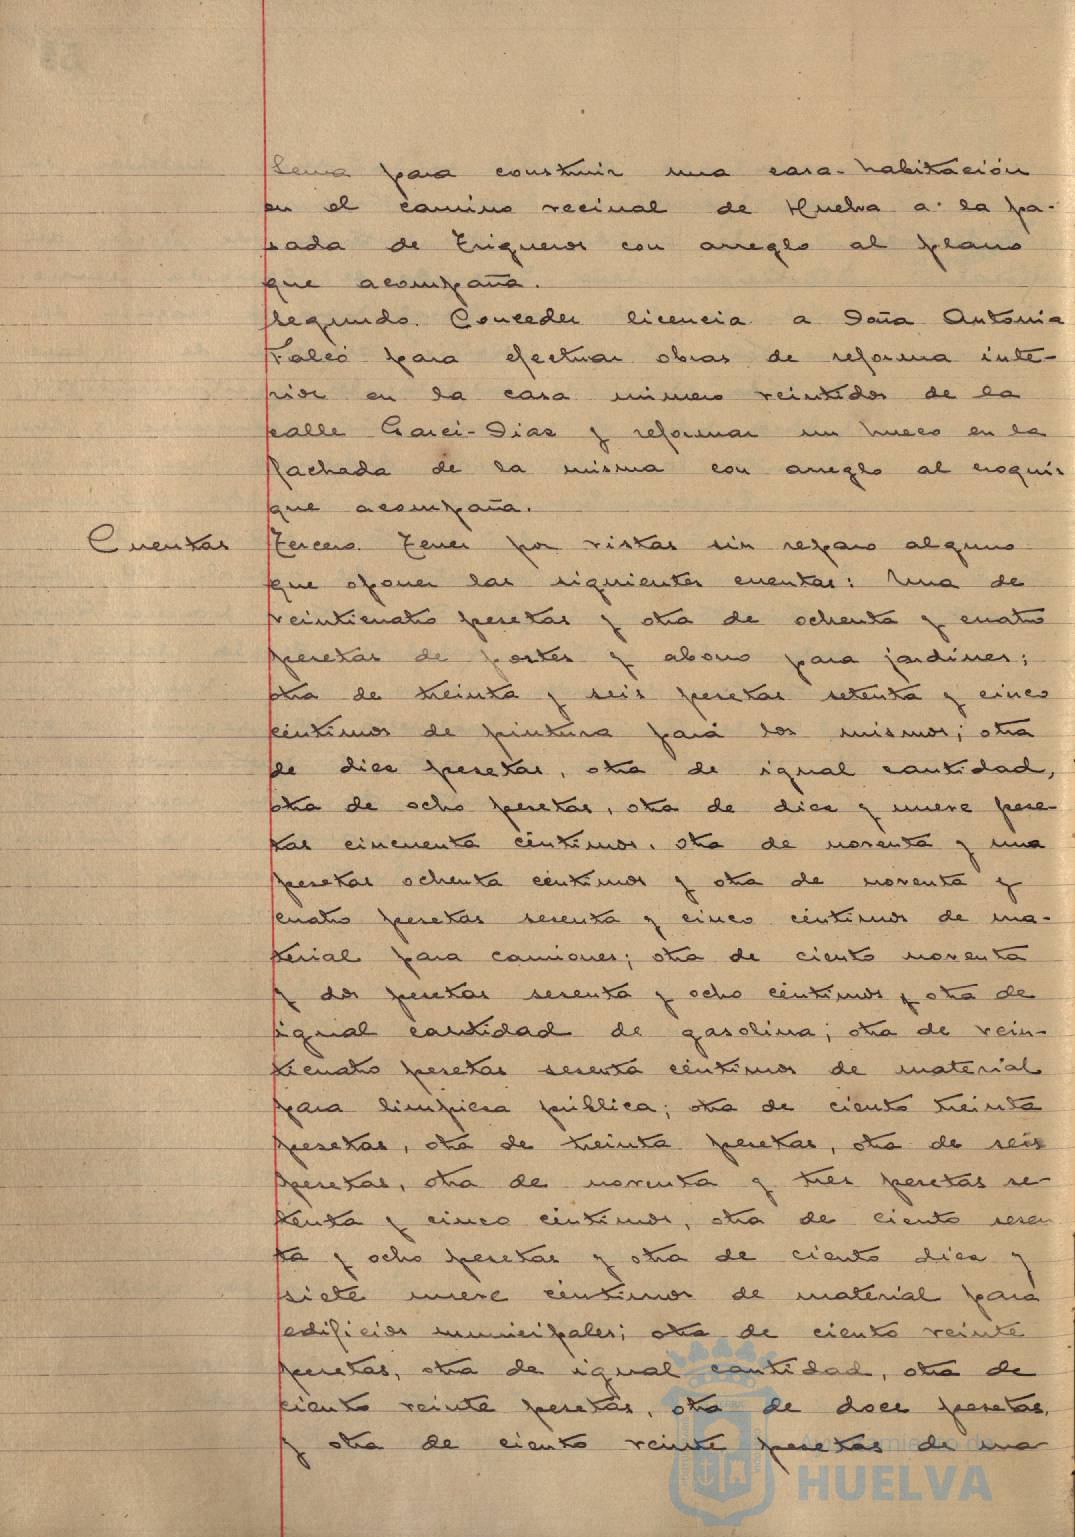 Serra para construir una casa-habitación
en el camino vecinal de Huelva a la pa-
sada de Trigueros con arreglo al plano
que acompaña.
Segundo. Conceder licencia a Doña Antonia
Falcó para efectuar obras de reforma inte-
rior en la casa número veintidos de la
calle Garci-Diaz y reformar un hueco en la
fachada de la misma con arreglo al croquis
que acompaña.
Cuentas Tercero. Tener por vistas sin reparo alguno
que oponer las siguientes cuentas: Una de
veinticuatro pesetas y otra de ochenta y cuatro
pesetas de portes y abono para jardines;
otra de treinta y seis pesetas setenta y cinco
céntimos de pintura para los mismos; otra
de diez pesetas, otra de igual cantidad,
otra de ocho pesetas, otra de diez y nueve pese-
tas cincuenta céntimos, otra de noventa y una
pesetas ochenta céntimos y otra de noventa y
cuatro pesetas sesenta y cinco céntimos de ma-
terial para camiones; otra de ciento noventa
y dos pesetas sesenta y ocho céntimos y otra de
igual cantidad de gasolina; otra de vein-
ticuatro pesetas sesenta céntimos de material
para limpieza pública; otra de ciento treinta
pesetas, otra de treinta pesetas, otra de seis
pesetas, otra de noventa y tres pesetas se-
tenta y cinco céntimos, otra de ciento sesen
ta y ocho pesetas y otra de ciento diez y
siete nueve céntimos de material para
edificios municipales; otra de ciento veinte
pesetas, otra de igual cantidad, otra de
ciento veinte pesetas, otra de doce pesetas,
y otra de ciento veinte pesetas de ma-
Ayuntamiento de
HUELVA